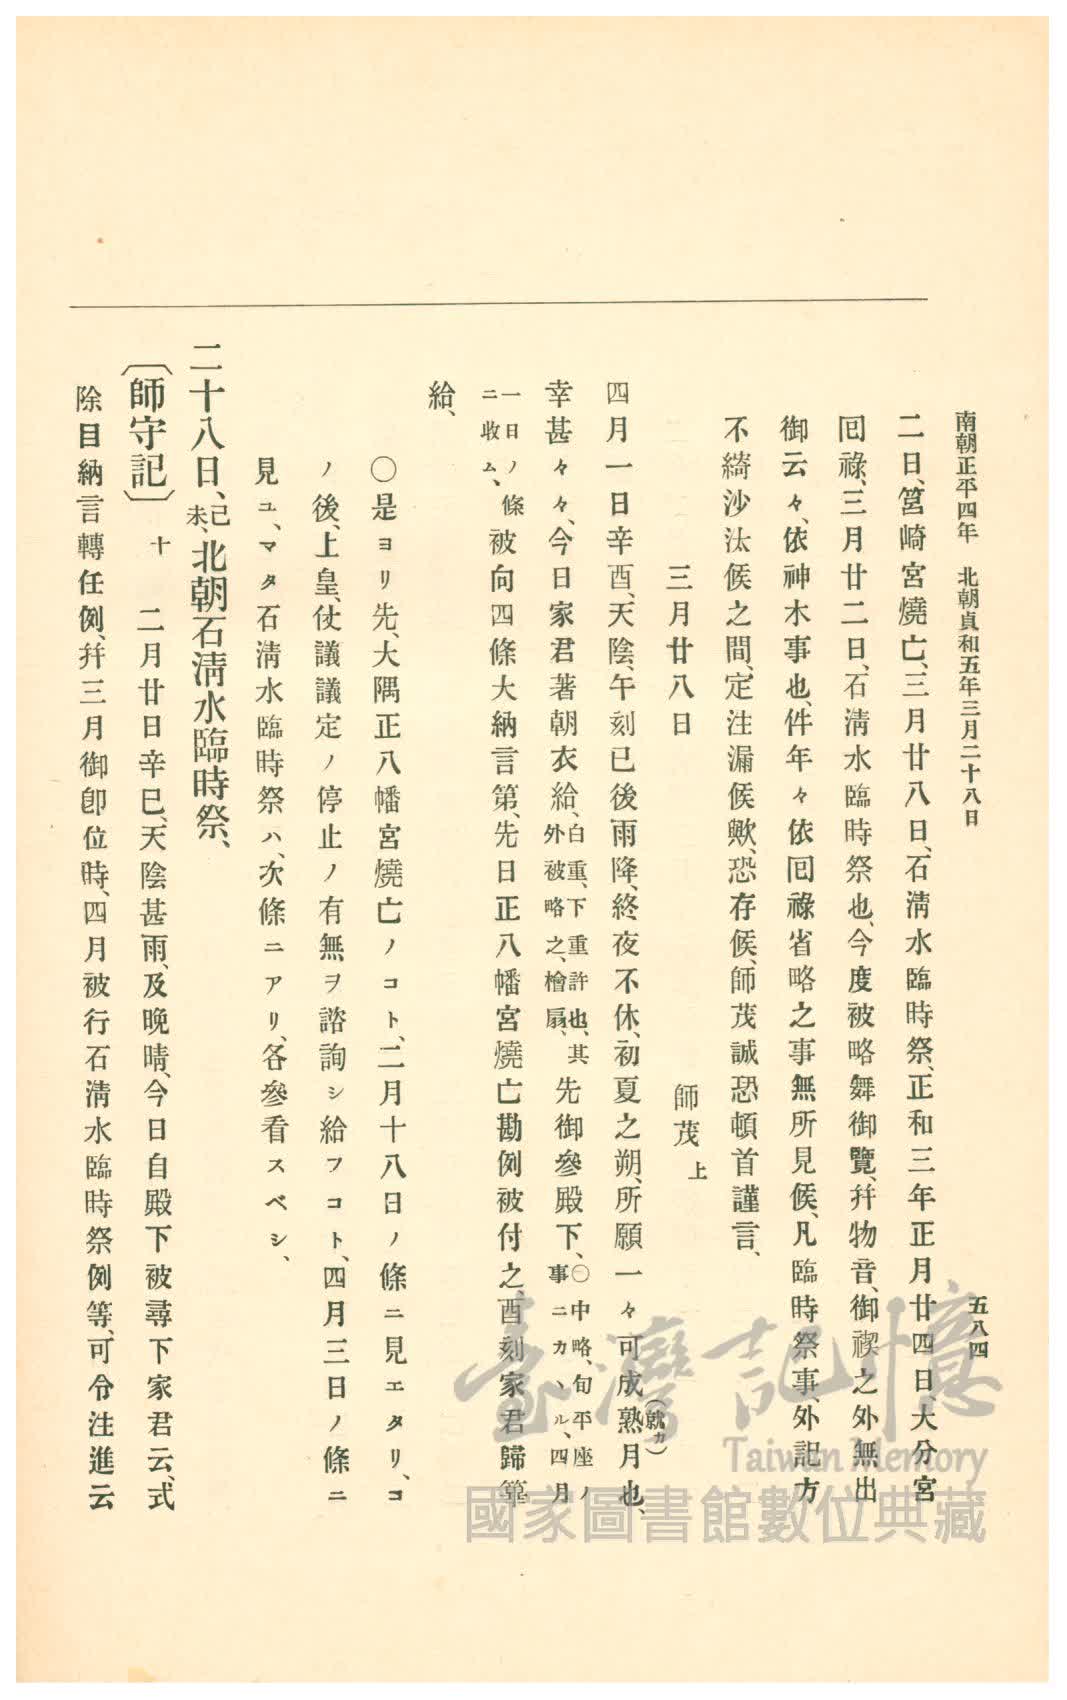 南朝正平四年　北朝貞和五年三月二十八日　五八四
二日、筥崎宮燒亡、三月廿八日、石淸水臨時祭、正和三年正月廿四日、大分宮
囘祿、三月廿二日、石淸水臨時祭也、今度被略舞御覽、幷物音、御禊之外無出
御云々、依神木事也、件年々依囘祿省略之事無所見候、凡臨時祭事、外記方
不綺沙汰候之間、定注漏候歟、恐存候、師茂誠恐頓首謹言、
三月廿八日　師茂上
四月一日辛酉、天陰、午刻已後雨降、終夜不休、初夏之朔、所願一々可成熟(就カ)月也、
幸甚々々、今日家君著朝衣給、白重、下重許也、其外被略之、檜扇、先御參殿下、○中略、旬平座ノ事ニカヽル、四月
一日ノ條ニ收ム、被向四條大納言第、先日正八幡宮燒亡勘例被付之、酉刻家君歸箪
給、
○是ヨリ先、大隅正八幡宮燒亡ノコト、二月十八日ノ條ニ見エタリ、コ
ノ後、上皇、仗議議定ノ停止ノ有無ヲ諮詢シ給フコト、四月三日ノ條ニ
見ユ、マタ石淸水臨時祭ハ、次條ニアリ、各參看スベシ、
二十八日、己未、北朝石淸水臨時祭、
〔師守記〕十　二月廿日辛巳、天陰甚雨、及晚晴、今日自殿下被尋下家君云、式
除目納言轉任例、幷三月御卽位時、四月被行石淸水臨時祭例等、可令注進云
臺灣記憶
Taiwan Memory
國家圖書館數位典藏